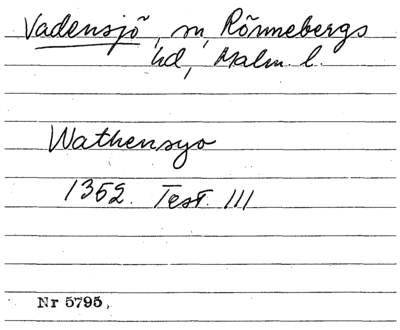 Vadensjö, sn, Rönnebergs
hd, Malm. l.
Wathensyo
1352. Test. III
Nr 5795.